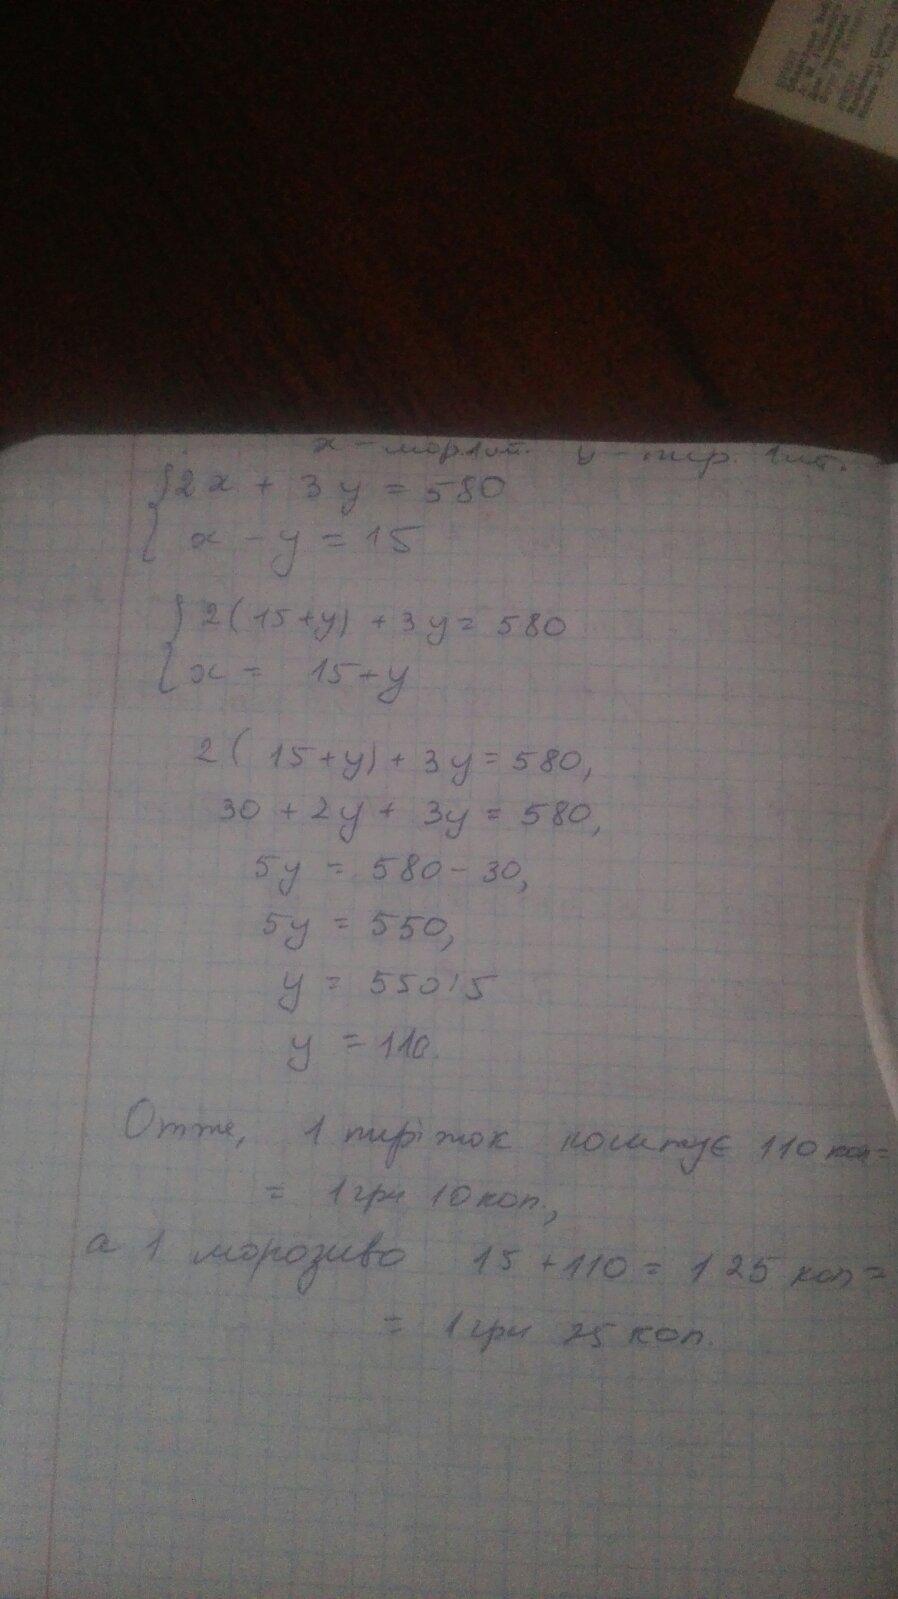 x - мор. 1 шт. y - пир. 1 шт.
{2x + 3y = 580
{x - y = 15
{2(15+y) + 3y = 580
{x = 15+y
2(15+y) + 3y = 580,
30 + 2y + 3y = 580,
5y = 580 - 30,
5y = 550,
y = 550:5
y = 110.
Отже, 1 пиріжок коштує 110 коп =
= 1 грн 10 коп.,
а 1 морозиво 15 + 110 = 125 коп =
= 1 грн 25 коп.